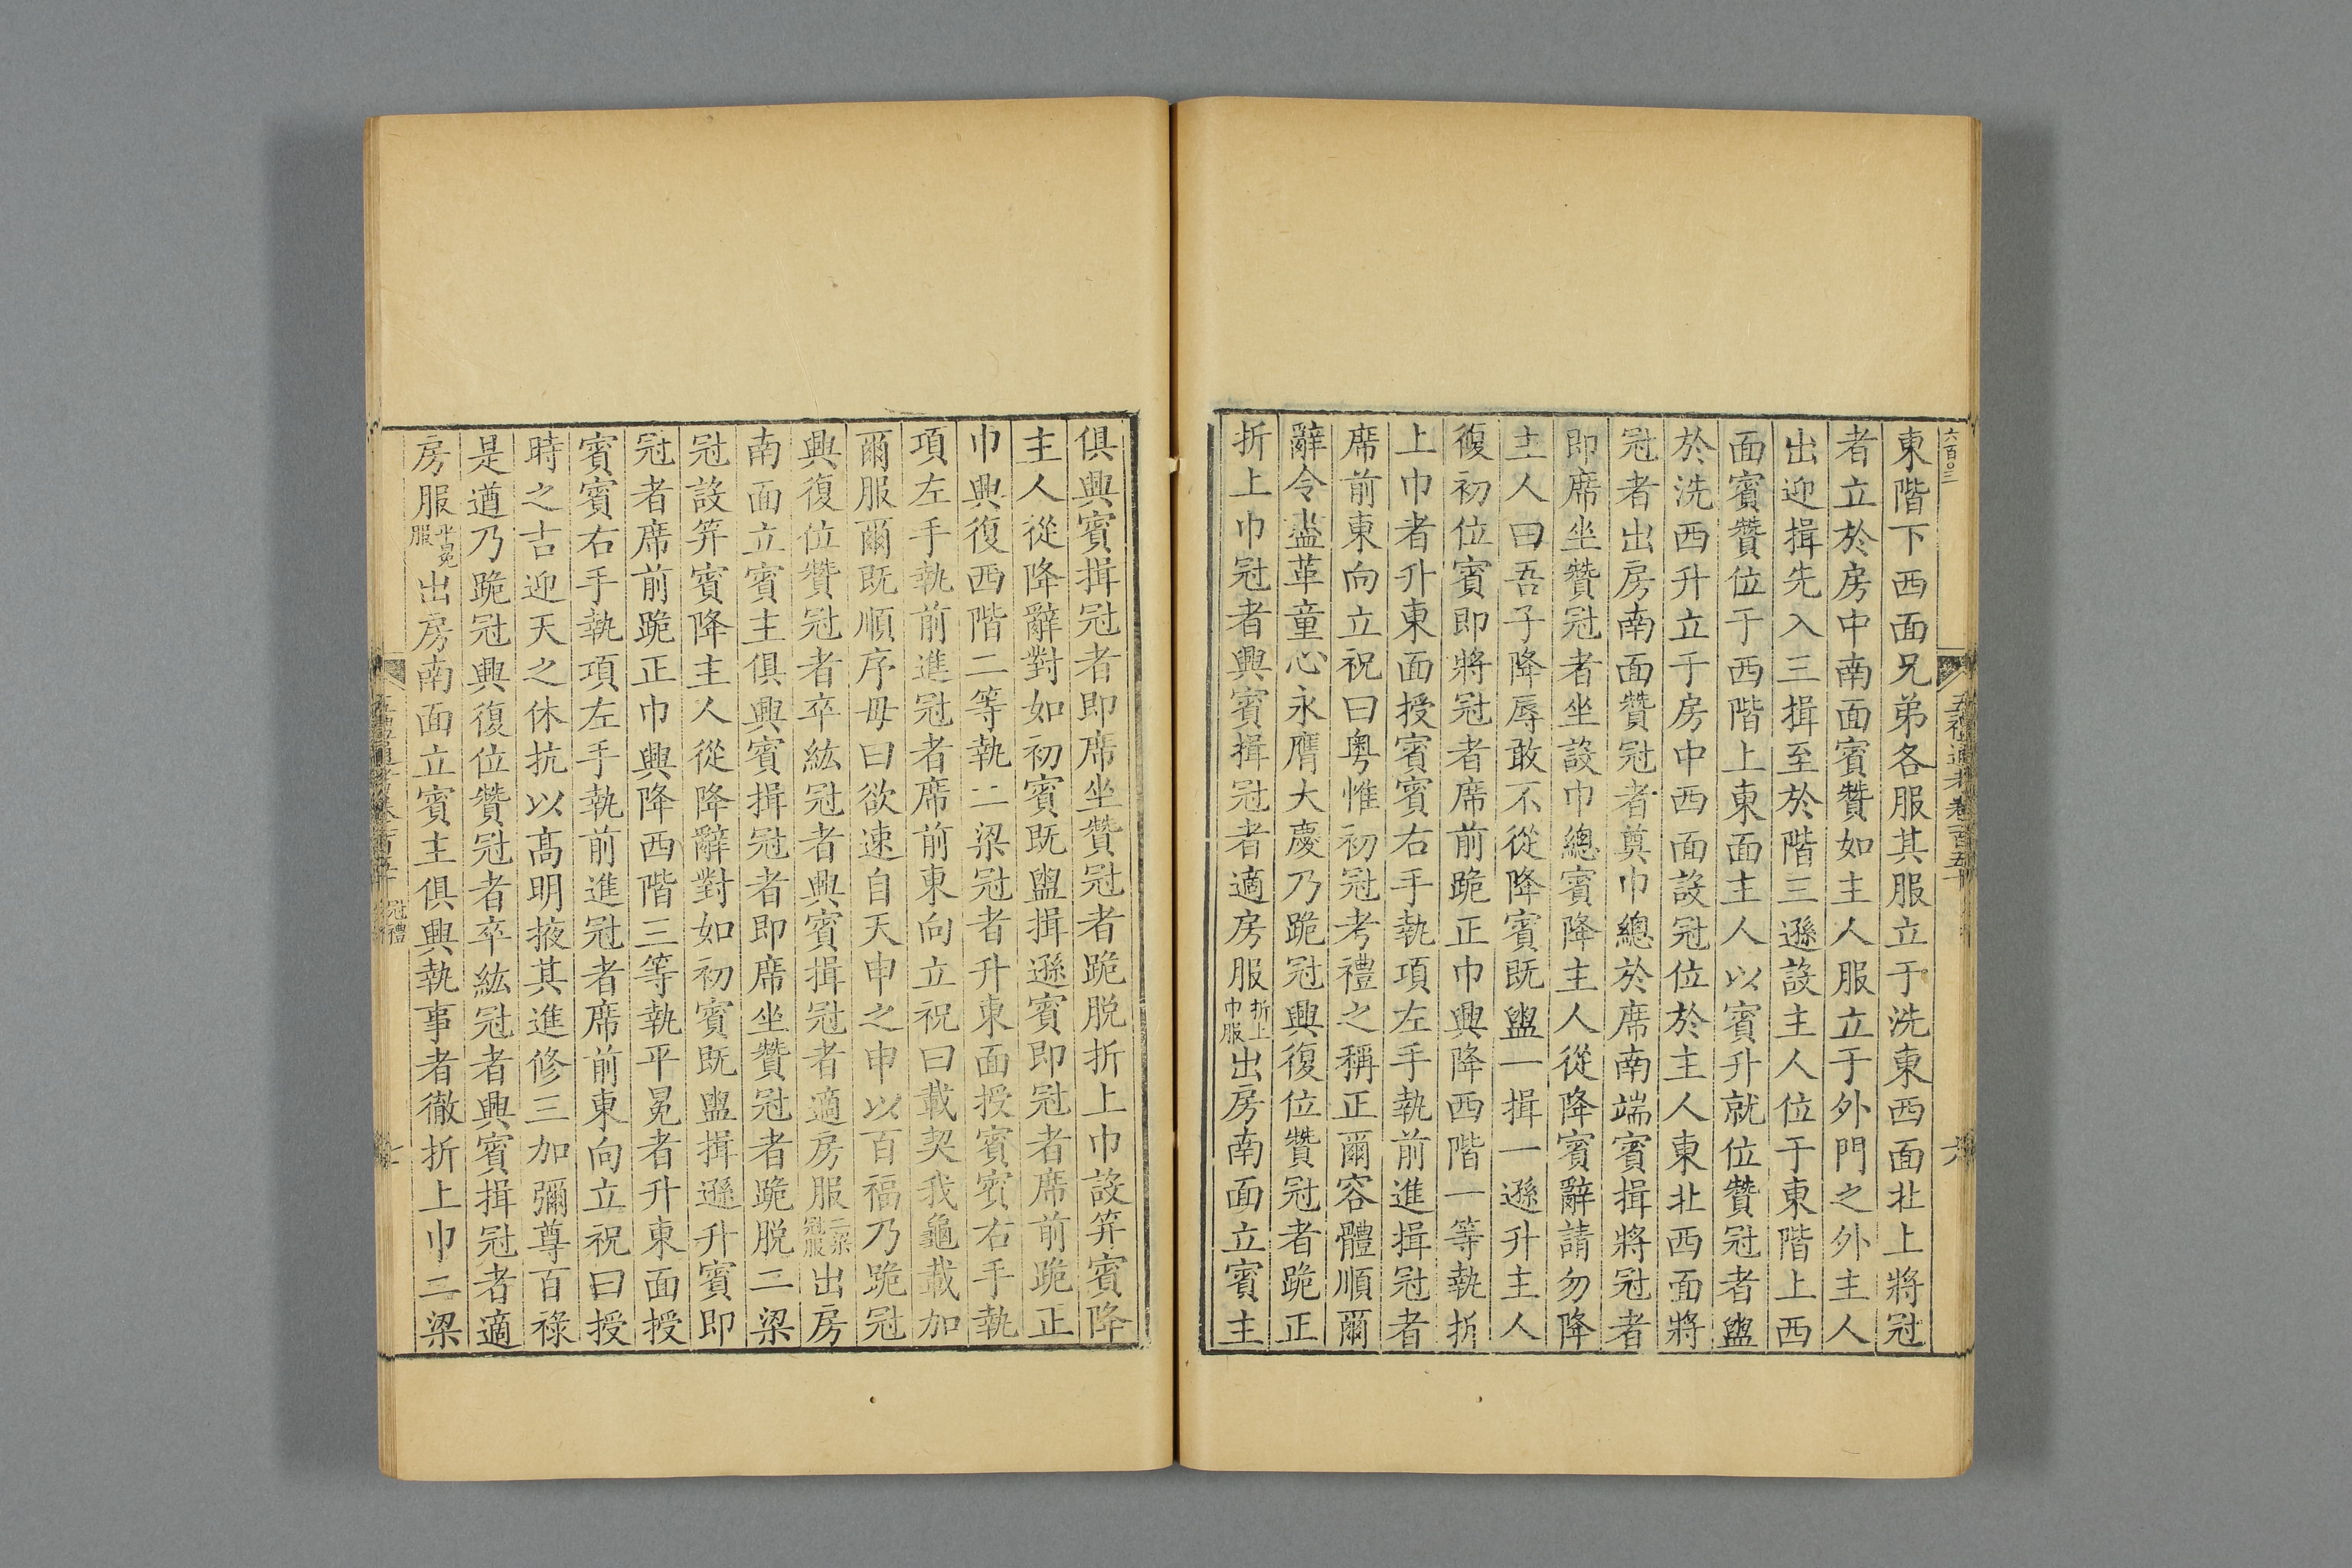 六百〇三
五禮通考卷一百五十
東階下西面兄弟各服其服立于洗東西面北上將冠
者立於房中南面賓贊如主人服立于外門之外主人
出迎揖先入三揖至於階三遜設主人位于東階上西
面賓贊位于西階上東面主人以賓升就位贊冠者盥
於洗西升立于房中西面設冠位於主人東北西面將
冠者出房南面贊冠者奠巾總於席南端賓揖將冠者
即席坐贊冠者坐設巾總賓降主人從降賓辭請勿降
主人曰吾子降辱敢不從降賓既盥一揖一遜升主人
復初位賓即將冠者席前跪正巾興降西階一等執折
上巾者升東面授賓賓右手執項左手執前進揖冠者
席前東向立祝曰粵惟初冠考禮之稱正爾容體順爾
辭令盍革童心永膺大慶乃跪冠興復位贊冠者跪正
折上巾冠者興賓揖冠者適房服折上巾服出房南面立賓主
俱興賓揖冠者即席坐贊冠者跪脫折上巾設笄賓降
主人從降辭對如初賓既盥揖遜賓即冠者席前跪正
巾興復西階二等執二梁冠者升東面授賓賓右手執
項左手執前進冠者席前東向立祝曰載契我龜載加
爾服爾既順序毋曰欲速自天申之申以百福乃跪冠
興復位贊冠者卒紘冠者興賓揖冠者適房服二梁冠服出房
南面立賓主俱興賓揖冠者即席坐贊冠者跪脫二梁
冠設笄賓降主人從降辭對如初賓既盥揖遜升賓即
冠者席前跪正巾興降西階三等執平冕者升東面授
賓賓右手執項左手執前進冠者席前東向立祝曰授
時之吉迎天之休抗以高明掖其進修三加彌尊百祿
是遒乃跪冠興復位贊冠者卒紘冠者興賓揖冠者適
房服平冕服出房南面立賓主俱興執事者徹折上巾二梁
冠禮